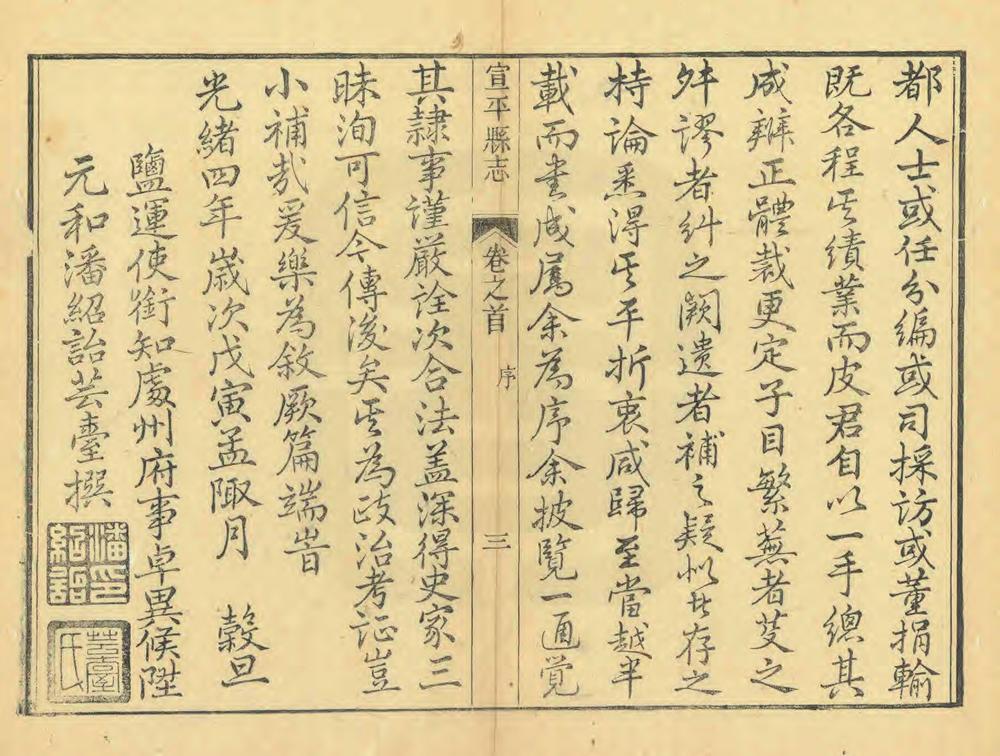 都人士或任分編或司採訪或董捐輸
既各程其績業而皮君自以一手總其
成辨正體裁更定子目繁蕪者芟之
舛謬者糾之闕遺者補之疑似者存之
持論悉得其平折衷咸歸至當越半
載而書成屬余為序余披覽一過覺
宣平縣志 卷之首 序 三
其隸事謹嚴詮次合法蓋深得史家三
昧洵可信今傳後矣其為政治考證豈
小補哉爰樂為敘厥篇端旹
光緒四年歲次戊寅孟陬月 穀旦
鹽運使銜知處州府事卓異候陞
元和潘紹詒芸臺撰
潘印紹詒
芸臺氏